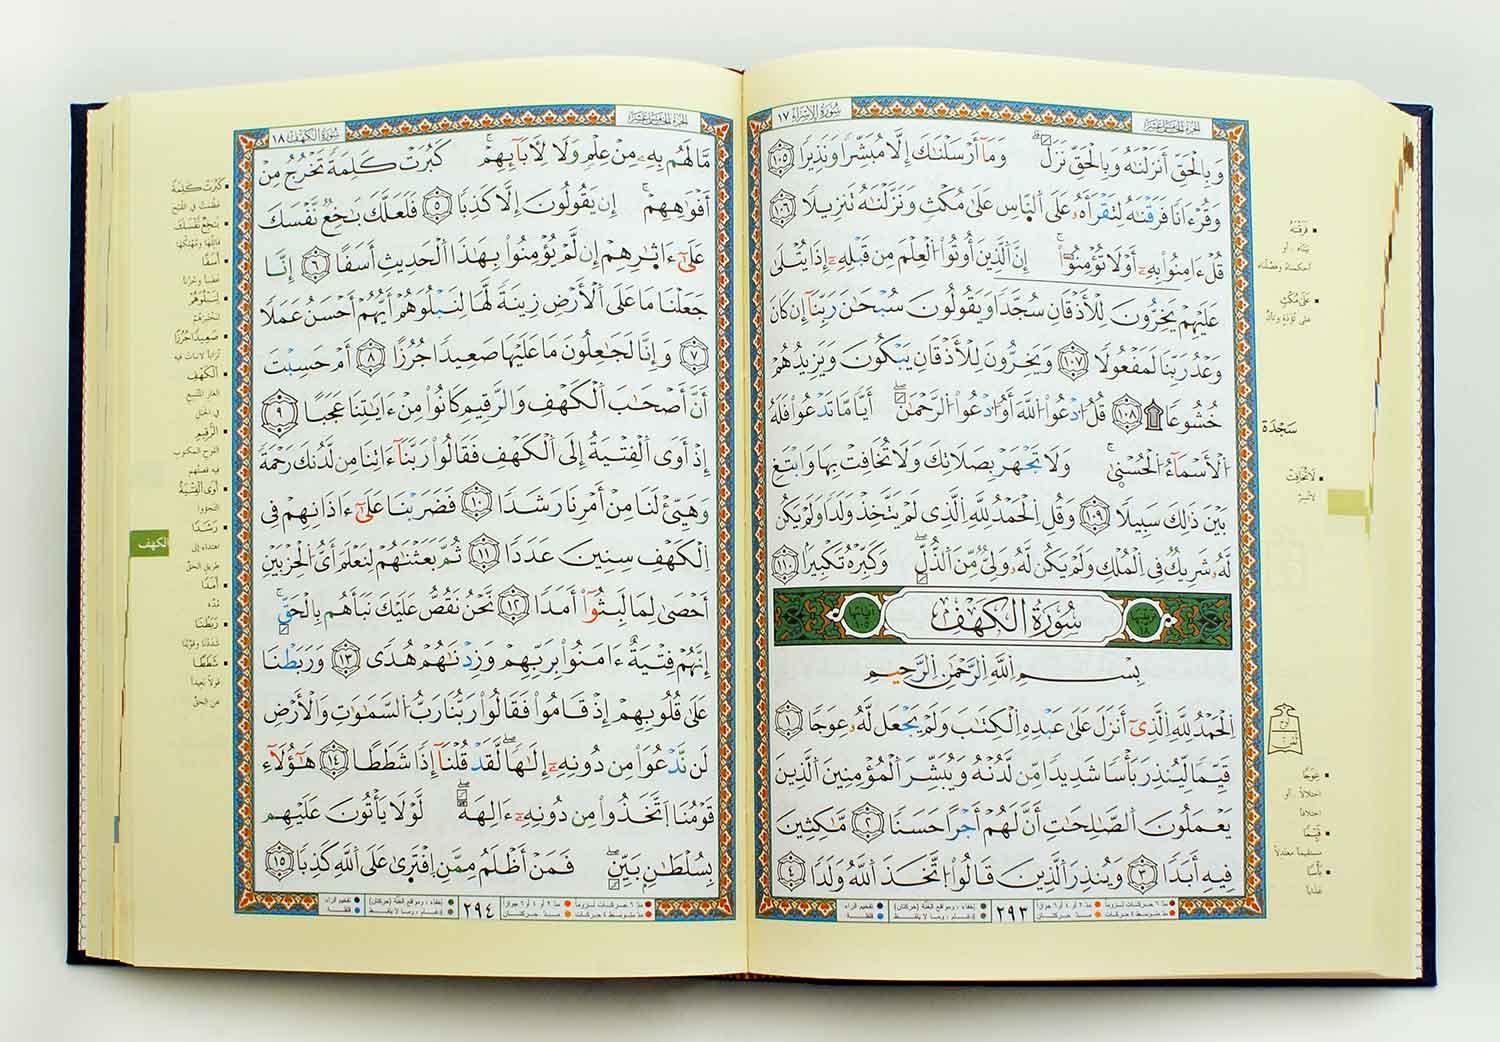 سُورَةُ الإِسْرَاءِ ١٧
الجُزْءُ الخَامِسُ عَشَرَ
وَبِالْحَقِّ أَنزَلْنَٰهُ وَبِالْحَقِّ نَزَلَ وَمَآ أَرْسَلْنَٰكَ إِلَّا مُبَشِّرًا وَنَذِيرًا ١٠٥
وَقُرْءَانًا فَرَقْنَٰهُ لِتَقْرَأَهُۥ عَلَى النَّاسِ عَلَىٰ مُكْثٍ وَنَزَّلْنَٰهُ تَنزِيلًا ١٠٦
قُلْ ءَامِنُوا۟ بِهِۦٓ أَوْ لَا تُؤْمِنُوٓا۟ إِنَّ الَّذِينَ أُوتُوا۟ الْعِلْمَ مِن قَبْلِهِۦٓ إِذَا يُتْلَىٰ
عَلَيْهِمْ يَخِرُّونَ لِلْأَذْقَانِ سُجَّدًا وَيَقُولُونَ سُبْحَٰنَ رَبِّنَآ إِن كَانَ
وَعْدُ رَبِّنَا لَمَفْعُولًا ١٠٧ وَيَخِرُّونَ لِلْأَذْقَانِ يَبْكُونَ وَيَزِيدُهُمْ
خُشُوعًا ۩ ١٠٨ قُلِ ادْعُوا۟ اللَّهَ أَوِ ادْعُوا۟ الرَّحْمَٰنَ أَيًّا مَّا تَدْعُوا۟ فَلَهُ
الْأَسْمَآءُ الْحُسْنَىٰ وَلَا تَجْهَرْ بِصَلَاتِكَ وَلَا تُخَافِتْ بِهَا وَابْتَغِ
بَيْنَ ذَٰلِكَ سَبِيلًا ١٠٩ وَقُلِ الْحَمْدُ لِلَّهِ الَّذِى لَمْ يَتَّخِذْ وَلَدًا وَلَمْ يَكُن
لَّهُۥ شَرِيكٌ فِى الْمُلْكِ وَلَمْ يَكُن لَّهُۥ وَلِىٌّ مِّنَ الذُّلِّ وَكَبِّرْهُ تَكْبِيرًا ١١٠
سُورَةُ الكَهْفِ
بِسْمِ اللَّهِ الرَّحْمَٰنِ الرَّحِيمِ
الْحَمْدُ لِلَّهِ الَّذِىٓ أَنزَلَ عَلَىٰ عَبْدِهِ الْكِتَٰبَ وَلَمْ يَجْعَل لَّهُۥ عِوَجًا ١
قَيِّمًا لِّيُنذِرَ بَأْسًا شَدِيدًا مِّن لَّدُنْهُ وَيُبَشِّرَ الْمُؤْمِنِينَ الَّذِينَ
يَعْمَلُونَ الصَّٰلِحَٰتِ أَنَّ لَهُمْ أَجْرًا حَسَنًا ٢ مَّٰكِثِينَ
فِيهِ أَبَدًا ٣ وَيُنذِرَ الَّذِينَ قَالُوا۟ اتَّخَذَ اللَّهُ وَلَدًا ٤
٢٩٣
فَرَقْنَٰهُ
عَلَىٰ مُكْثٍ
سَجْدَة
لَا تُخَافِتْ
عِوَجًا
قَيِّمًا
مستقيماً معتدلاً
بَأْسًا
سُورَةُ الكَهْفِ ١٨
الجُزْءُ الخَامِسُ عَشَرَ
مَّا لَهُم بِهِۦ مِنْ عِلْمٍ وَلَا لِءَابَآئِهِمْ كَبُرَتْ كَلِمَةً تَخْرُجُ مِنْ
أَفْوَٰهِهِمْ إِن يَقُولُونَ إِلَّا كَذِبًا ٥ فَلَعَلَّكَ بَٰخِعٌ نَّفْسَكَ
عَلَىٰٓ ءَاثَٰرِهِمْ إِن لَّمْ يُؤْمِنُوا۟ بِهَٰذَا الْحَدِيثِ أَسَفًا ٦ إِنَّا
جَعَلْنَا مَا عَلَى الْأَرْضِ زِينَةً لَّهَا لِنَبْلُوَهُمْ أَيُّهُمْ أَحْسَنُ عَمَلًا
٧ وَإِنَّا لَجَٰعِلُونَ مَا عَلَيْهَا صَعِيدًا جُرُزًا ٨ أَمْ حَسِبْتَ
أَنَّ أَصْحَٰبَ الْكَهْفِ وَالرَّقِيمِ كَانُوا۟ مِنْ ءَايَٰتِنَا عَجَبًا ٩
إِذْ أَوَى الْفِتْيَةُ إِلَى الْكَهْفِ فَقَالُوا۟ رَبَّنَآ ءَاتِنَا مِن لَّدُنكَ رَحْمَةً
وَهَيِّئْ لَنَا مِنْ أَمْرِنَا رَشَدًا ١٠ فَضَرَبْنَا عَلَىٰٓ ءَاذَانِهِمْ فِى
الْكَهْفِ سِنِينَ عَدَدًا ١١ ثُمَّ بَعَثْنَٰهُمْ لِنَعْلَمَ أَىُّ الْحِزْبَيْنِ
أَحْصَىٰ لِمَا لَبِثُوٓا۟ أَمَدًا ١٢ نَّحْنُ نَقُصُّ عَلَيْكَ نَبَأَهُم بِالْحَقِّ
إِنَّهُمْ فِتْيَةٌ ءَامَنُوا۟ بِرَبِّهِمْ وَزِدْنَٰهُمْ هُدًى ١٣ وَرَبَطْنَا
عَلَىٰ قُلُوبِهِمْ إِذْ قَامُوا۟ فَقَالُوا۟ رَبُّنَا رَبُّ السَّمَٰوَٰتِ وَالْأَرْضِ
لَن نَّدْعُوَا۟ مِن دُونِهِۦٓ إِلَٰهًا لَّقَدْ قُلْنَآ إِذًا شَطَطًا ١٤ هَٰٓؤُلَآءِ
قَوْمُنَا اتَّخَذُوا۟ مِن دُونِهِۦٓ ءَالِهَةً لَّوْلَا يَأْتُونَ عَلَيْهِم
بِسُلْطَٰنٍۭ بَيِّنٍ فَمَنْ أَظْلَمُ مِمَّنِ افْتَرَىٰ عَلَى اللَّهِ كَذِبًا ١٥
٢٩٤
كَبُرَتْ كَلِمَةً
بَٰخِعٌ نَّفْسَكَ
أَسَفًا
لِنَبْلُوَهُمْ
صَعِيدًا جُرُزًا
الْكَهْفِ
الرَّقِيمِ
أَوَى الْفِتْيَةُ
رَشَدًا
أَمَدًا
رَبَطْنَا
شَطَطًا
الكهف